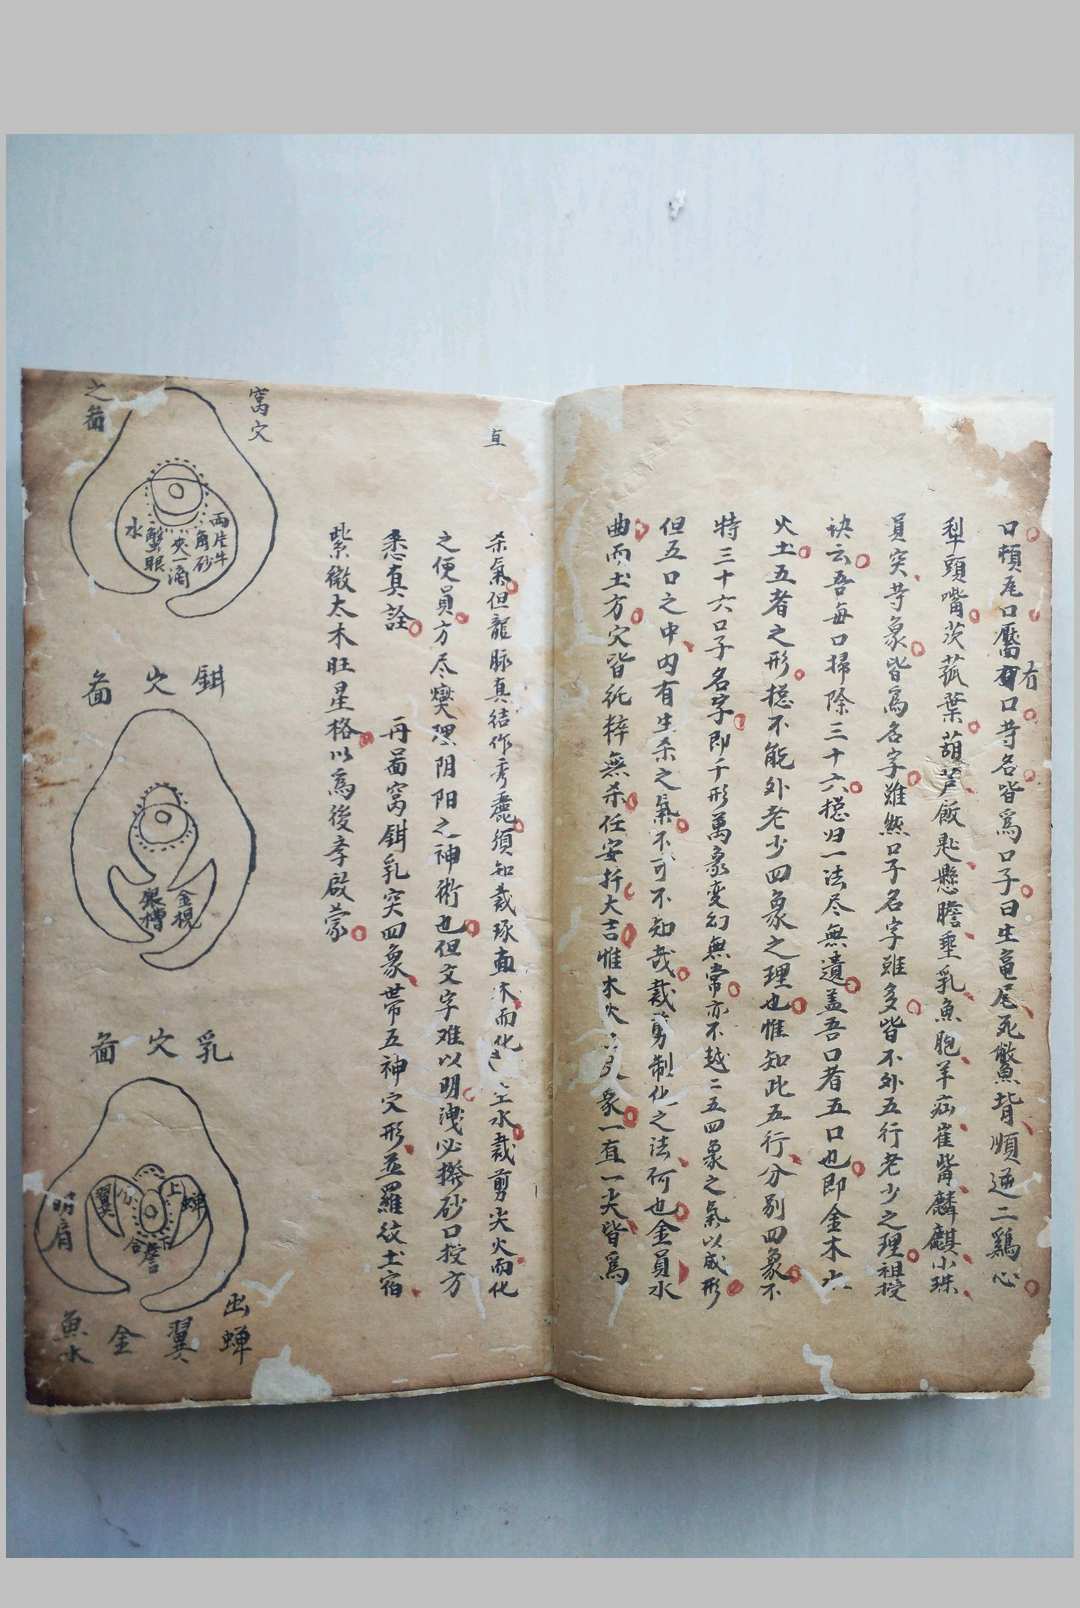 口頓尾口靨有口苛名皆爲口子曰生龜尾死鱉背順逆二鷄心
犁頭嘴茨菰葉葫芦飯匙懸膽垂乳魚胞羊疝雀觜麟麒小珠
員突苛象皆爲名字雖然口子名字雖多皆不外五行老少之理祖授
訣云吾每口掃除三十六揔归一法尽無遺盖吾口者五口也即金木水
火土五者之形揔不能外老少四象之理也惟知此五行分别四象不
特三十六口子名字即千形萬象变幻無常亦不越二五四象之氣以成形
但五口之中内有生杀之氣不可不知哉裁剪制化之法何也金員水
曲而土方穴皆純粹無杀任安扦大吉惟木火象一直一尖皆爲
直
杀氣但龍脉真结作秀麗須知裁琢直木而化水裁剪尖火而化
之使員方尽爕理阴阳之神術也但文字难以明洩必撥砂口授方
悉真詮
再啚窩鉗乳突四象帶五神穴形並羅紋土宿
紫微太木旺星格以爲後孝啟蒙
窩穴
之啚
两片牛
角砂
夾一滴
蟹眼
水
鉗穴啚
金梘
銀槽
乳穴啚
上
蟬
翼
合
詹
明肩
出蟬
翼
金
魚水